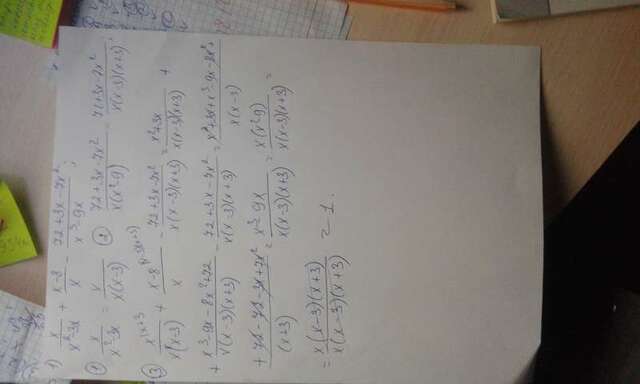 1) x/(x²-3x) + (x-8)/x - (72+3x-7x²)/(x³-9x);
① x/(x²-3x) = x/(x(x-3)) ② (72+3x-7x²)/(x(x²-9)) = (72+3x-7x²)/(x(x-3)(x+3));
③ x^(x+3)/(x(x-3)) + (x-8)^((x-3)(x+3))/x - (72+3x-7x²)/(x(x-3)(x+3)) = (x²+3x)/(x(x-3)(x+3)) +
+ (x³-9x-8x²+72)/(x(x-3)(x+3)) - (72+3x-7x²)/(x(x-3)(x+3)) = (x²+3x+x³-9x-8x²+)/(x(x-3)
(+72-72-3x+7x²)/(x+3) = (x³-9x)/(x(x-3)(x+3)) = (x(x²-9))/(x(x-3)(x+3)) =
= (x(x-3)(x+3))/(x(x-3)(x+3)) = 1.